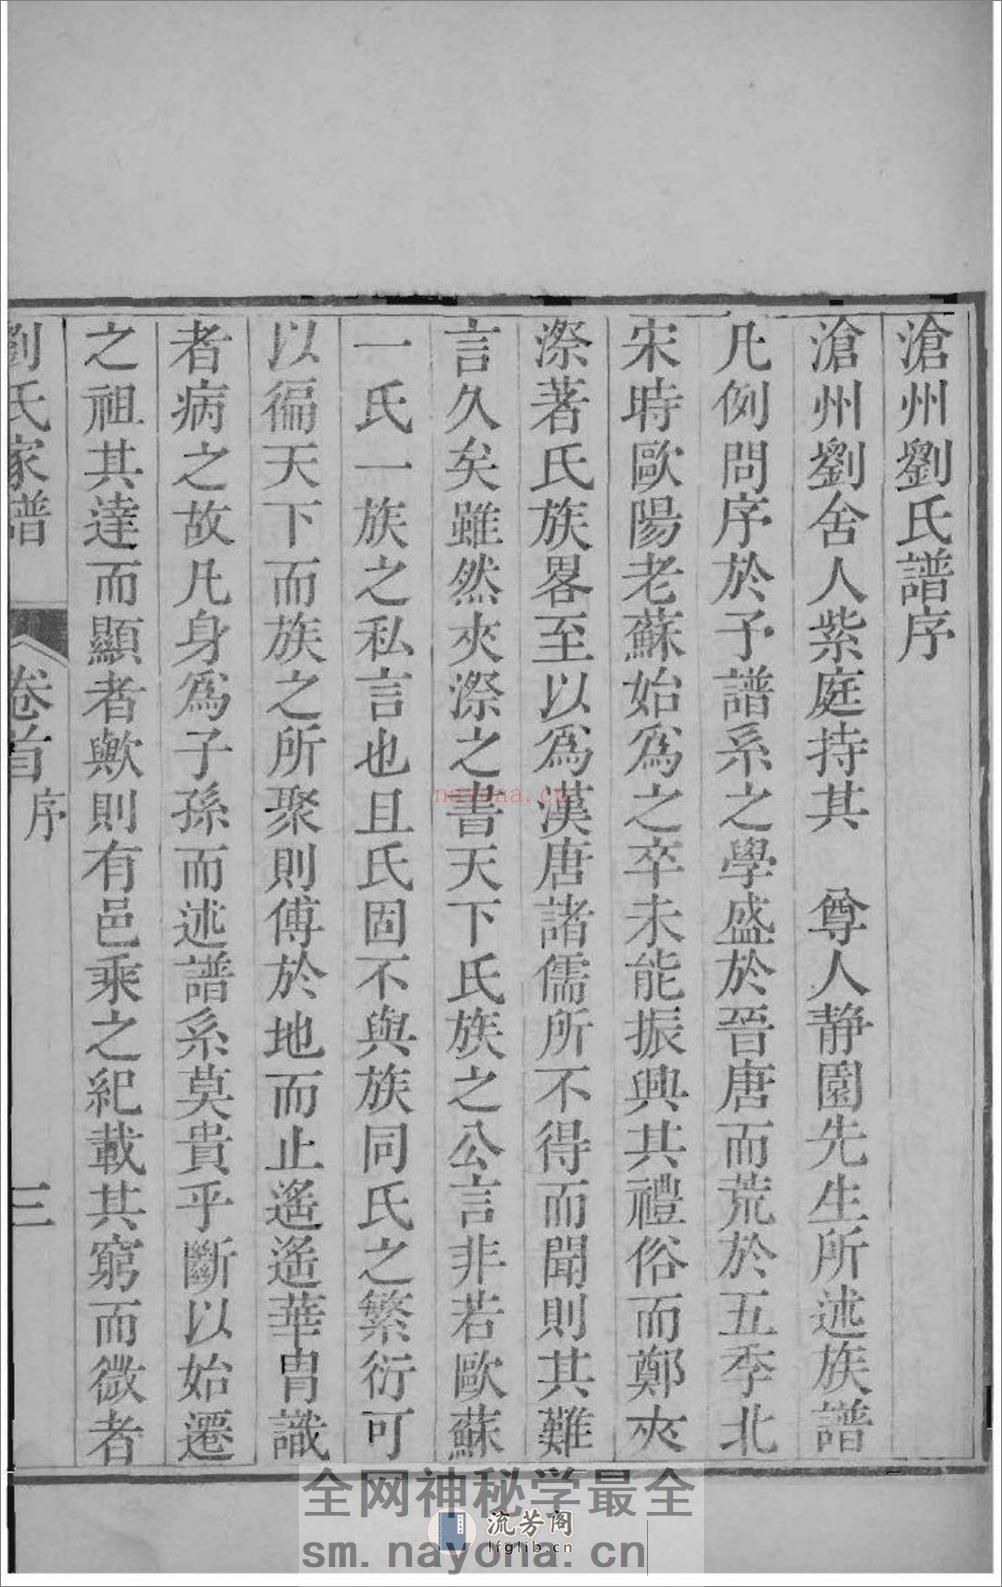 滄州劉氏譜序
滄州劉舍人紫庭持其　尊人靜園先生所述族譜
凡例問序於予譜系之學盛於晉唐而荒於五季北
宋時歐陽老蘇始爲之卒未能振興其禮俗而鄭夾
漈著氏族畧至以爲漢唐諸儒所不得而聞則其難
言久矣雖然夾漈之書天下氏族之公言非若歐蘇
一氏一族之私言也且氏固不與族同氏之繁衍可
以徧天下而族之所聚則傅於地而止遙遙華胄識
者病之故凡身爲子孫而述譜系莫貴乎斷以始遷
之祖其達而顯者歟則有邑乘之紀載其窮而微者
劉氏家譜　卷首　序　三
nayona.cn
全网神秘学最全
流芳阁
lfglib.cn
sm.nayona.cn